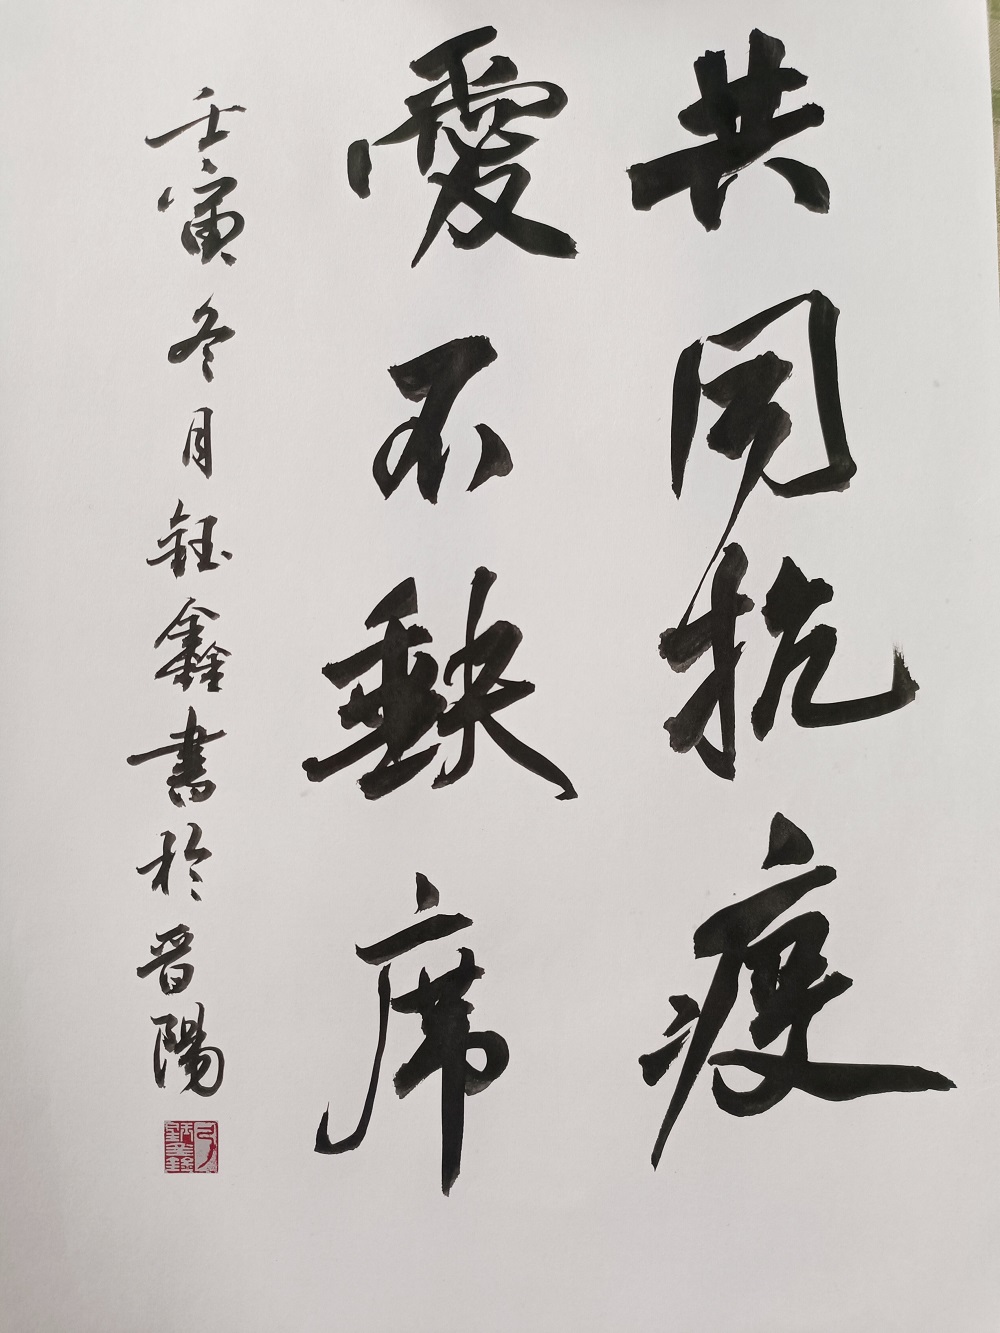 共同抗疫
愛不缺席
壬寅冬月钰鑫書於晋陽